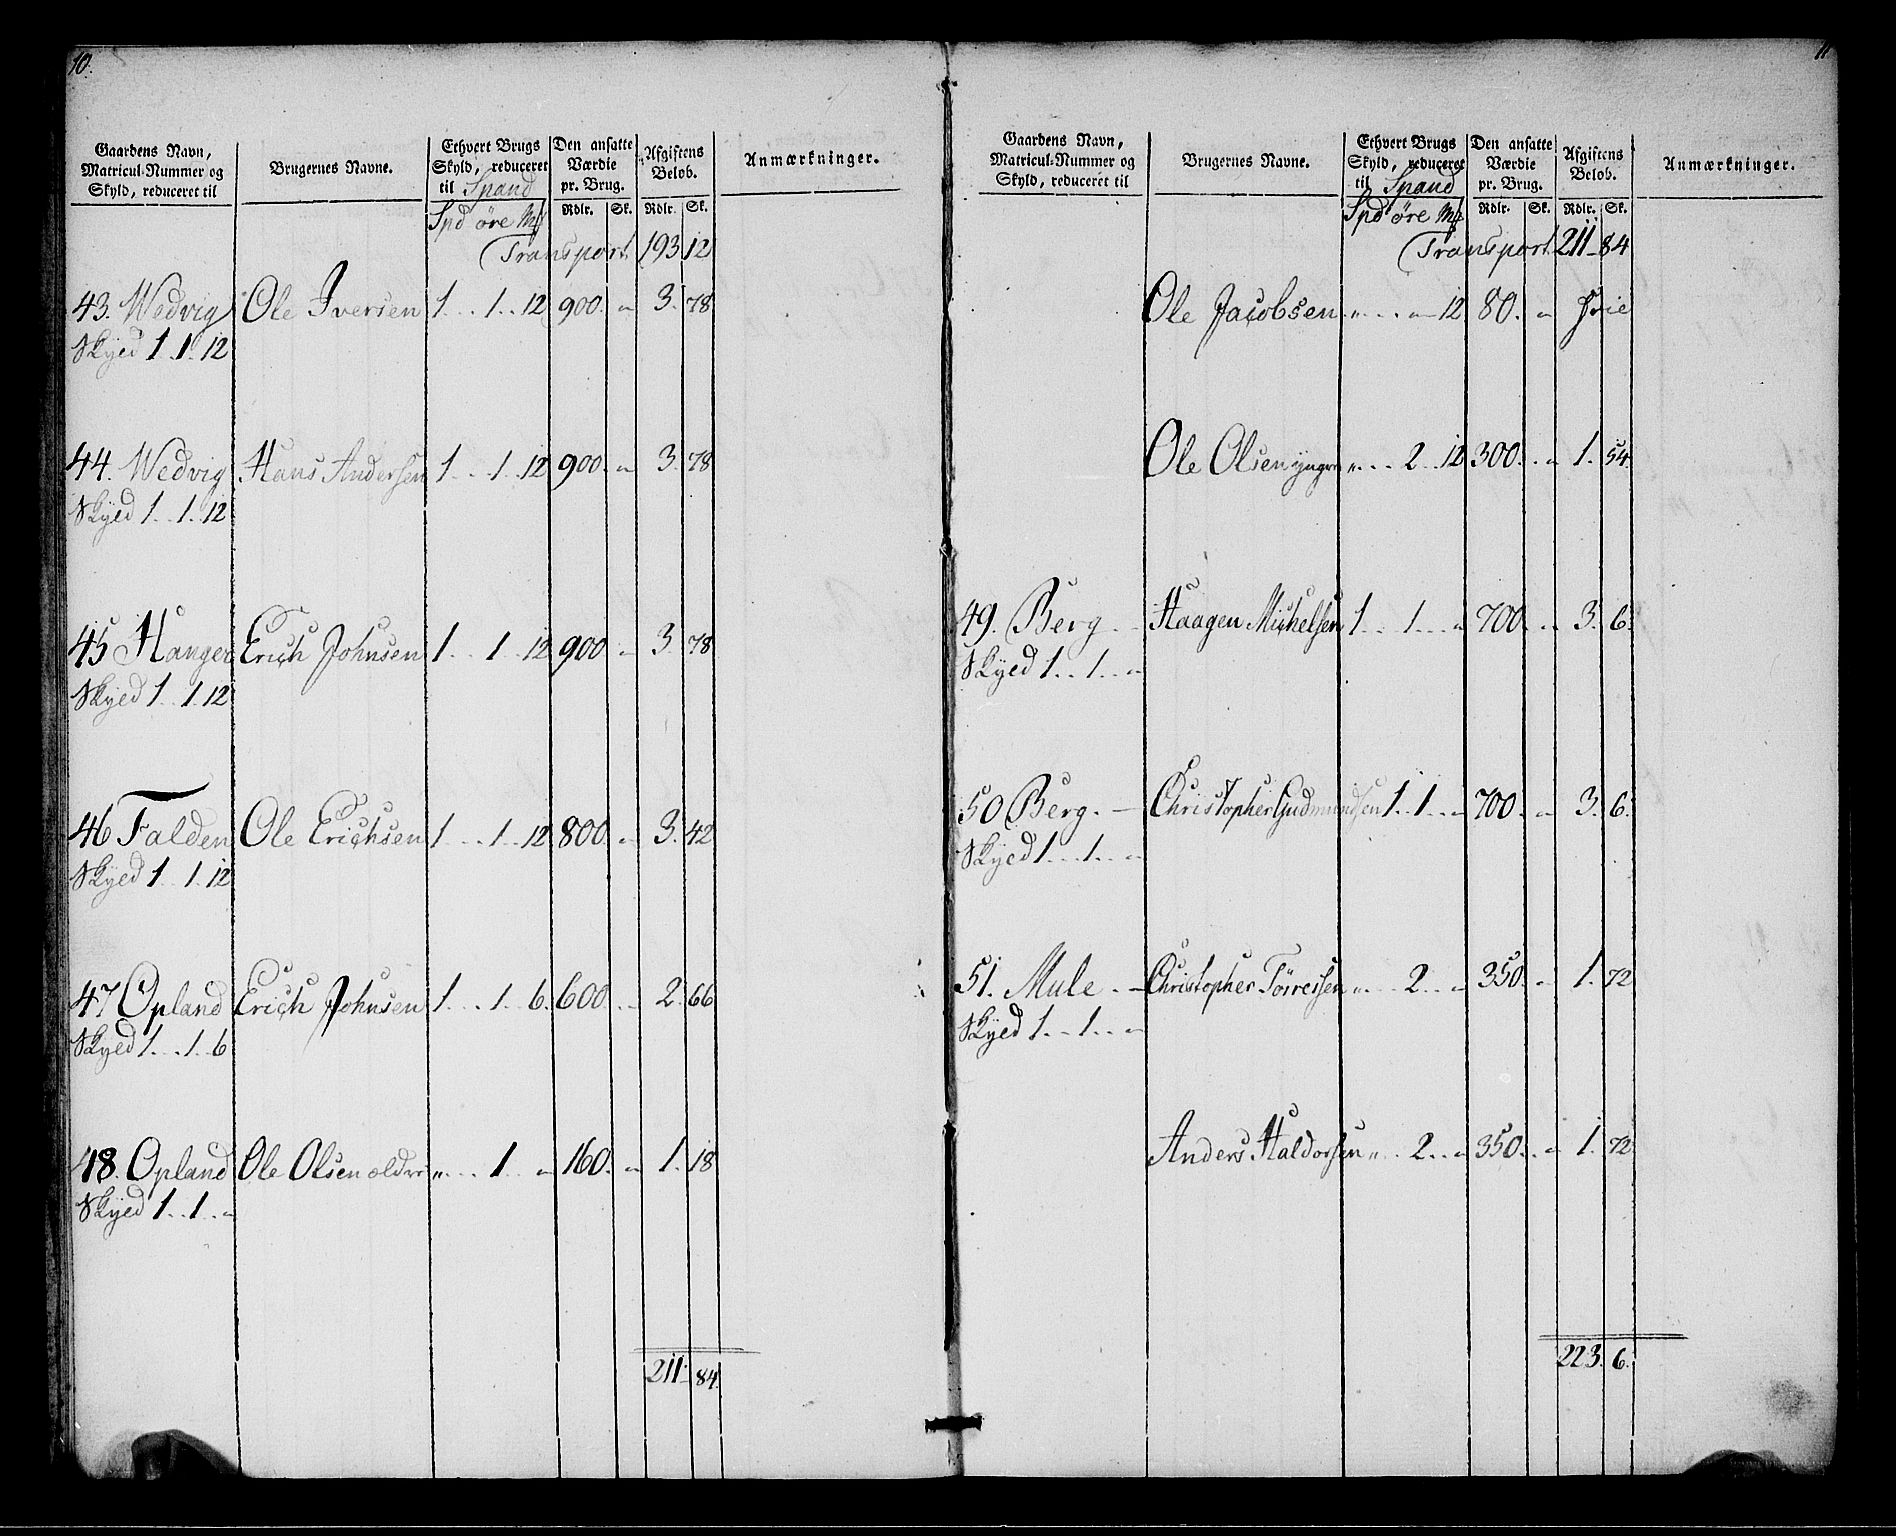 10.
Gaardens Navn, Matricul-Nummer og Skyld, reduceret til
Brugernes Navne.
Ethvert Brugs Skyld, reduceret til Spand
Den ansatte Værdie pr. Brug.
Afgiftens Beløb.
Anmærkninger.
Spd øre Mf Rdlr. Sk. Rdlr. Sk.
Transport 193 12
43. Wedvig Ole Iversen 1 . . 1 . . 12 900. " 3. 78
Skyed 1 . 1 . 12
44. Wedvig Hans Andersen 1 . . 1 . 12 900. " 3. 78
Skyed 1 . . 1 . 12
45 Hanger Erich Johnsen 1 . . 1 . . 12 900 " 3. 78
Skyed 1 . . 1 . 12
46 Falden Ole Erichsen 1 . . 1 . . 12 800. " 3. 42
Skyed 1 . . 1 . 12
47 Opland Erich Johnsen 1 . . . 1 . 6. 600. . . 2. 66
Skyed 1 . . . 1 . 6
48. Opland Ole Olsen ældre " . . . 1 . " 160. " 1. 18
Skyed 1 . . 1 . . "
211. 84.
11
Gaardens Navn, Matricul-Nummer og Skyld, reduceret til
Brugernes Navne.
Ethvert Brugs Skyld, reduceret til Spand
Den ansatte Værdie pr. Brug.
Afgiftens Beløb.
Anmærkninger.
Spd øre Mf Rdlr. Sk. Rdlr. Sk.
Transport 211 84
Ole Jacobsen " . . . " 12 80. " frie
Ole Olsen yngre " . . . 2 . . 12 300. . " 1. 54.
49. Berg. Haagen Michelsen 1 . . 1 . . . " 700. . . 3. 6.
Skyed 1 . . 1 . . "
50 Berg. Christopher Gudmundsen 1 . . 1 . . " 700. " 3. 6.
Skyed 1 . . . 1 . . "
51. Mule. Christopher Törressen " . . . 2 . . " 350. " 1. 72
Skyed 1 . . 1 . . "
Anders Haldorsen " . . 2 . . " 350. . " 1. 72
223. 6.